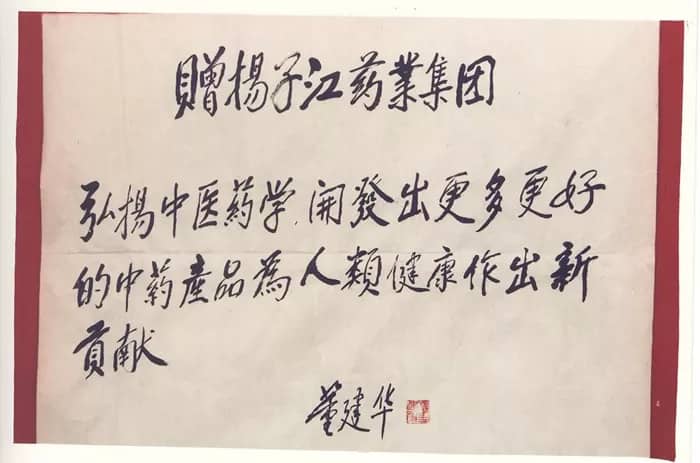 贈揚子江药業集团
弘揚中医药学，開發出更多更好
的中药產品為人類健康作出新
貢献
董建华